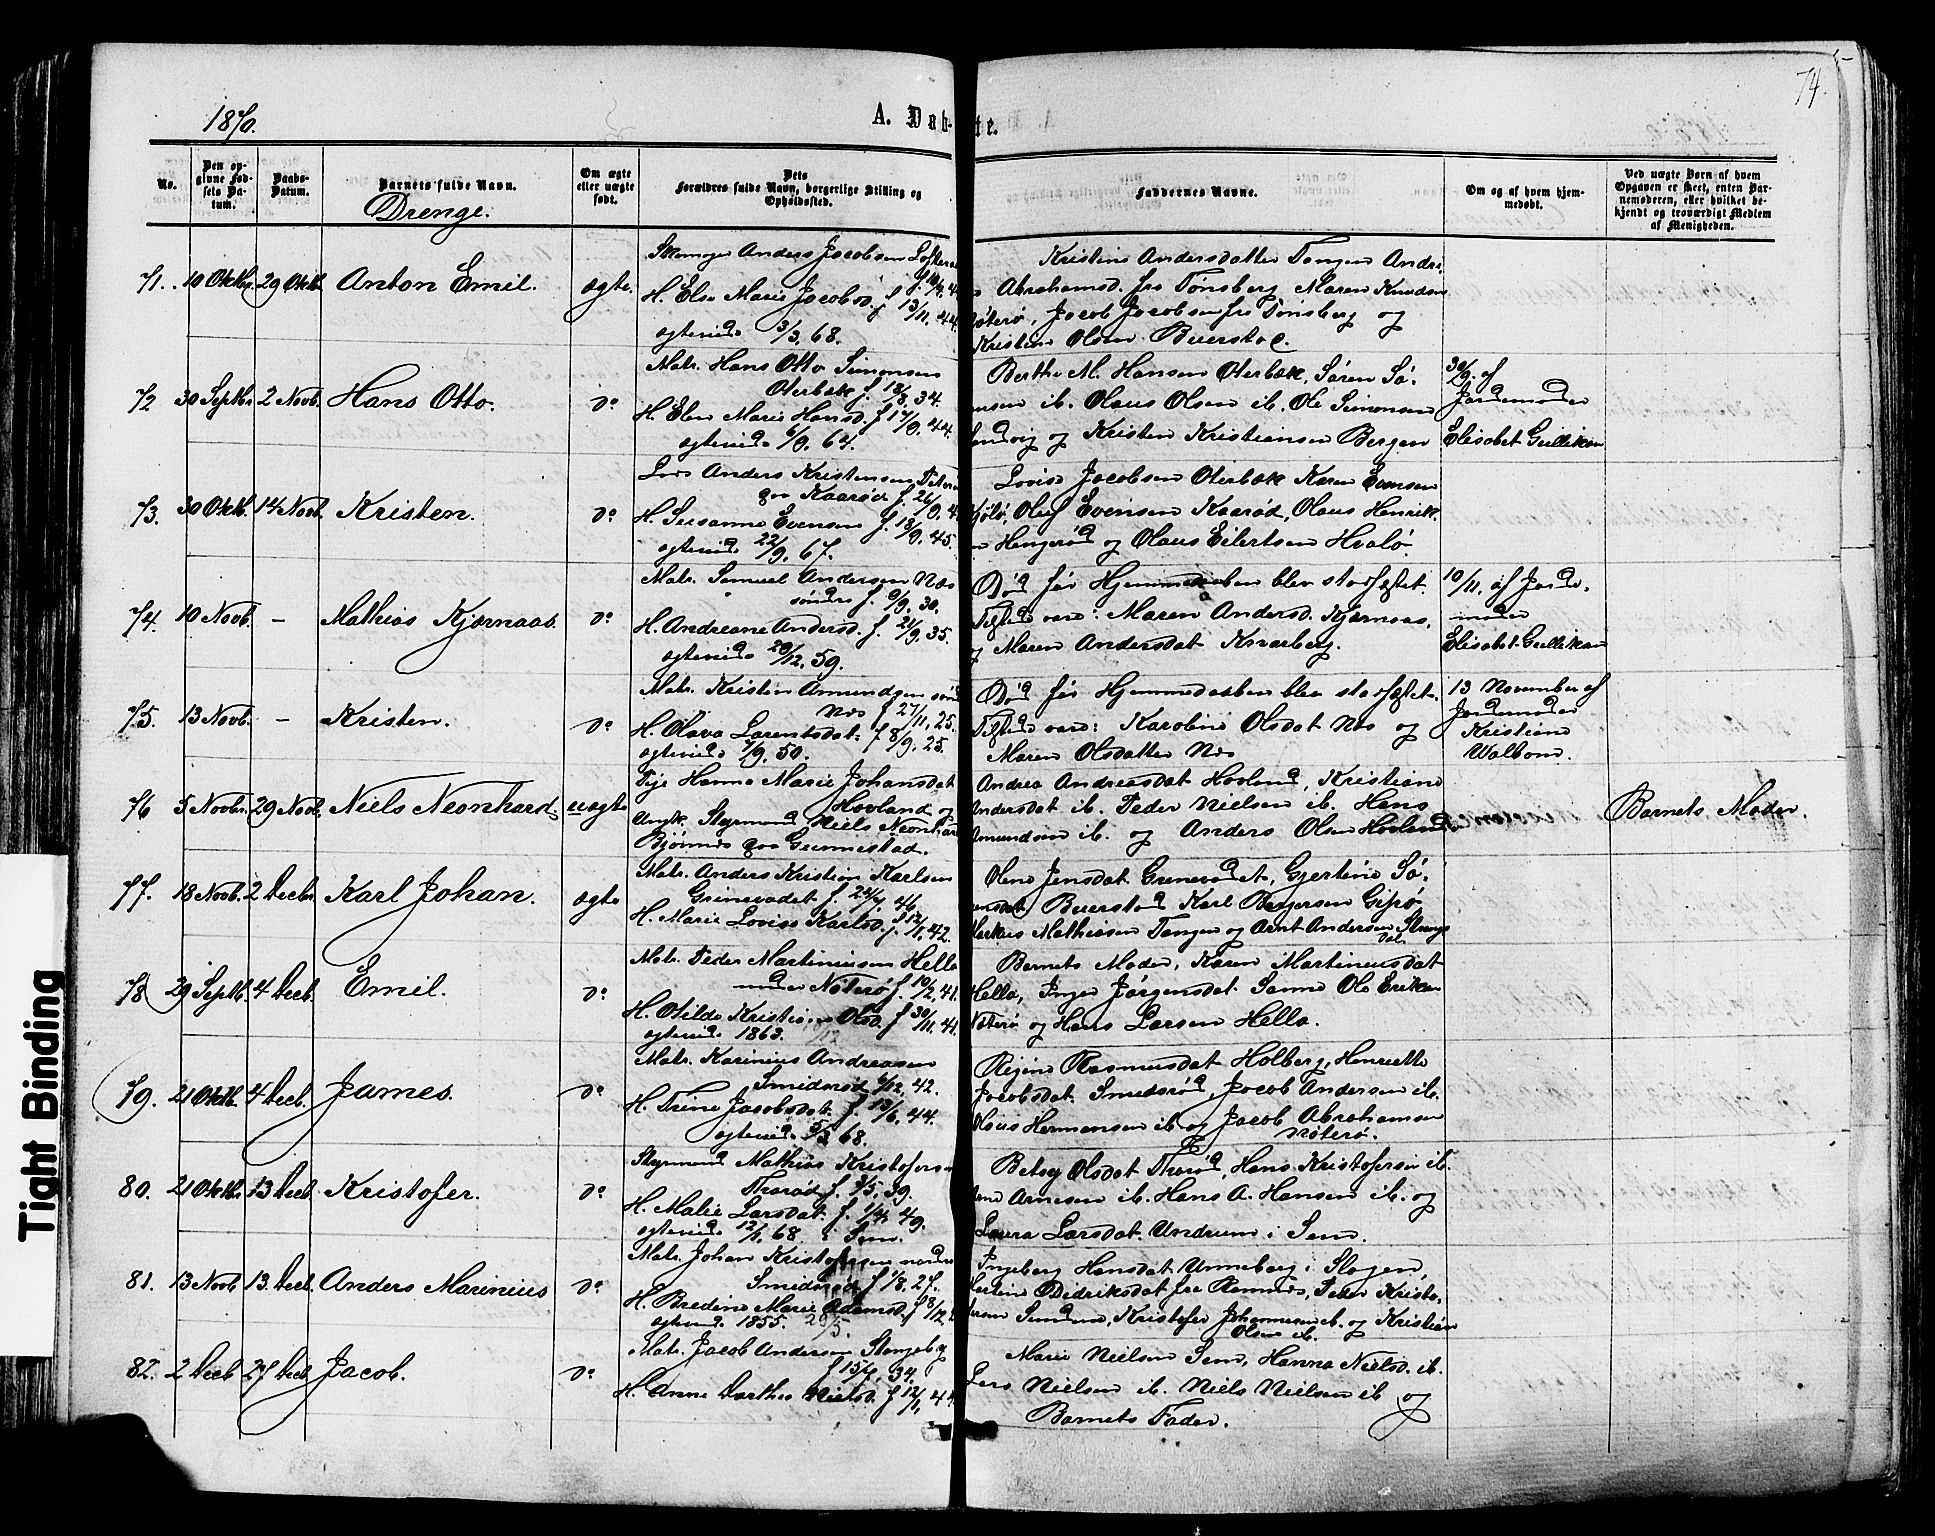 74.
1870.
A. Døb-te.
No.
Den opgivne Fødsels Datum.
Daabs-Datum.
Barnets fulde Navn.
Drenge.
Om ægte eller uægte født.
Dets Forældres fulde Navn, borgerlige Stilling og Opholdssted.
Faddernes Navne.
Om og af hvem hjemmedøbt.
Ved uægte Børn af hvem Opgaven er skeet, enten Barnemoderen, eller hvilket bekjendt og troværdigt Medlem af Menigheden.
71. 10 Oktbr. 29 Oktb. Anton Emil. ægte.
Anders Jacobsen
H. Else Marie Jacobsd. f 13/11. 44.
ægteviede 3/3. 68.
Kristine Andersdatter Tangen Andr.
Abrahams. fra Tønsberg Maren Knudsen
Nøterø, Jacob Jacobsen fra Tønsberg og
Kristian Olsen Buerstad.
72 30 Septbr 2 Novb. Hans Otto. do
Matr. Hans Otto Simonsen
Oterbæk f. 18/8. 34.
H. Elen Marie Hansd. f 17/9. 44.
ægteviede 6/9. 64.
Berthe M. Hansen Oterbæk, Søren Sø-
rensen ib. Olaus Olsen ib. Ole Simonsen
og Kristen Kristiansen Bergan
30/9. af
Jordemoder
Elisabet Gulliksen
73. 30 Oktb. 14 Novb. Kristen. do
Lods Anders Kristensen
paa Kaarød f. 26/9. 4
H. Susanne Evensen f. 18/9. 45.
ægteviede 22/9. 67.
Lovise Jacobsen Oterbæk Karen Evensen
Oluf Evensen Kaarød, Olaus Henrik-
sen Hengerød og Olaus Eilertsen Hvalø.
74. 10 Novb. - Mathias Kjærnaas. do
Matr. Samuel Andersen Næs
søndre f. 9/9. 30.
H. Andreane Andersd. f. 24/9. 35.
ægteviede 29/12. 59.
Død før Hjemmedaaben blev stadfæstet.
Tilstede vare: Maren Andersd. Kjærnaas,
og Maren Andersdat Knarberg.
10/11. af Jorde-
moder
Elisabet Gulliksen
75. 13 Novb. - Kristen. do
Matr. Kristen Amundsen
Næs f 27/11. 25.
H. Olava Larentsdat. f 8/9. 25.
ægteviede 7/9. 50.
Død før Hjemmedaaben blev stadfæstet.
Tilstede vare: Karoline Olsdat Næs og
Maren Olsdatter Næs
13 November af
Jordemoder
Kristiane
Walbom.
76 5 Novbr. 29 Novb. Niels Neonhard. uægte
Pige Hanna Marie Johansdat
Hovland og
Ungk. Styrmand Niels Neonhard
Bjønnes paa Gunnestad.
Andrea Andreasdat Hovland, Kristiane
Andersdat ib. Peder Nielsen ib. Hans
Amundsen ib. og Anders Olsen Hovland
Barnets Moder.
77. 18 Novb. 2 Decbr Karl Johan. ægte
Matr. Anders Kristian Karlsen
Grimevadet f. 24/7. 46
H. Marie Lovise Karlsd. f. 12/1. 42.
Olena Jensdat Grenevadet, Gjertine Sø-
rensdat Buerstad Karl Børgersen Gipø
Markus Mathiasen Tangen og Arnt Andersen
78 29 Septb. 4 Decb. Emil. do
Matr. Peder Martinusen Hella
under Nøterø f. 10/2. 41.
H. Otilde Kristine Olsd. f 30/11. 41
ægteviede 1863.
Barnets Moder, Karen Martinusdat
Hella, Inger Jørgensdat Sanne Ole Eriksen
Nøterø og Hans Larsen Hella.
79. 21 Oktb. 4 Decb. James. do
Matr. Karinius Andreassen
Smidsrød 6/12. 42.
H. Trine Jacobsdat f. 13/6. 44
ægteviede 68.
Regine Rasmusdat Holberg, Henriette
Jacobsdat Smidsrød, Jacob Andersen ib.
Olaus Hermansen ib og Jacob Abrahamsen
Nøterø.
80. 21 Oktb. 13 Decb. Kristofer. do
Styrmand Mathias Kristofersen
Thorød f. 39.
H. Malie Larsdat f. 1/4. 49.
ægteviede 12/1. 68 i Sem.
Betsy Olsdat Thorød, Hans Kristofersen ib.
Arnesen ib. Hans A. Hansen ib. og
Laura Larsdat Undrum i Sem.
81. 13 Novb 13 Decb. Anders Marinius do
Matr. Johan Kristofersen nordre
Smidsrød f 1/8. 27.
H. Bredine Marie Adamsd. f
ægteviede 1855. 29/5.
Ingeborg Hansdat Unneberg i Slagen,
Didriksdat fra Ramnes, Peder Kristo-
fersen, Kristofer Johannesen ib. og Kristian
Olsen ib.
82. 2 Decb 27 Decb Jacob. do
Matr. Jacob Andersen
f 15/7. 34.
H. Anne Dorthea Nielsd. f 12/1. 44
Marie Nielsen Sem, Hanna Nielsd. ib.
Lars Nielsen ib. Niels Nielsen ib og
Barnets Fader.
Tight Binding